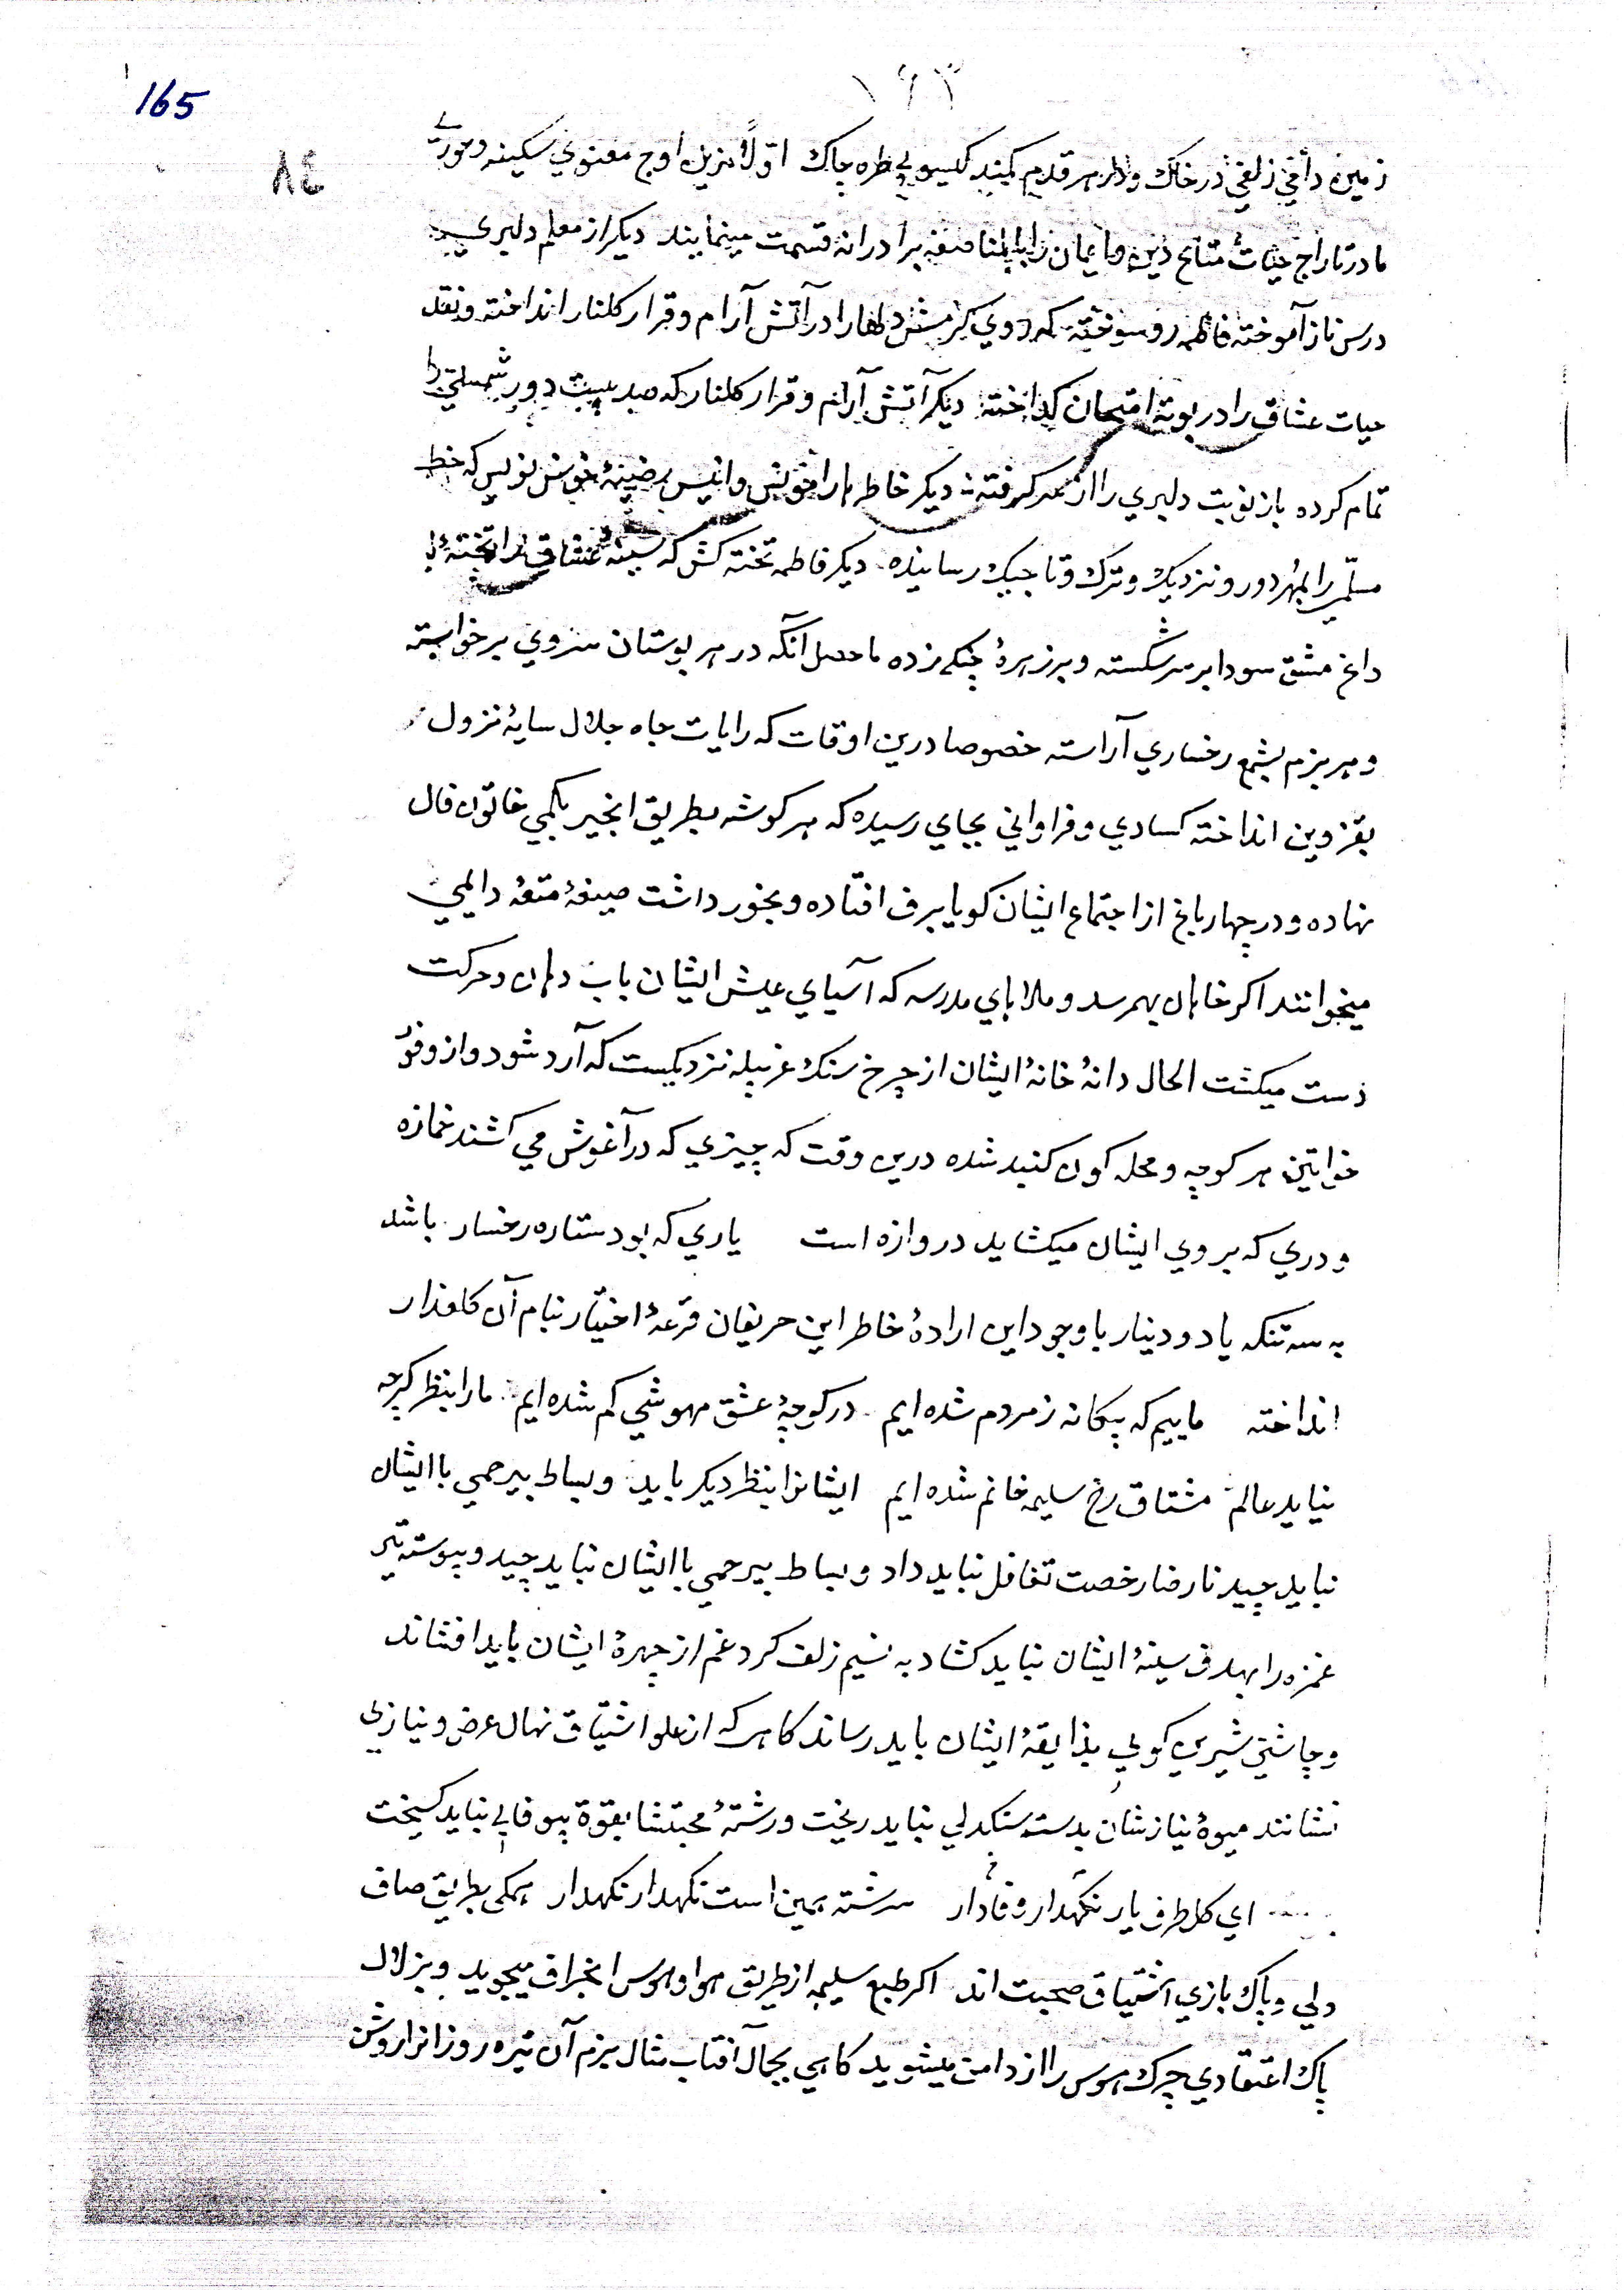 165
۱۶۳
۸٤
زمین دامی زلفی در خاک و در هر قدم کمند کیسوی طره چاک اوّلاً نزیل اوج معنوی سکینه و حوریی
مادر تاراج حیات متاع دین و ایمان را بالمناصفه برادرانه قسمت مینمایند دیکر از معلم دلبری
درس ناز آموخته فاطمه روسوخته که روی کرمش دلها را در آتش آرام و قرار کلنار انداخته و نقد
حیات عشاق را در بوتهٔ امتحان کداخته دیکر آتش آرام و قرار کلنار که صد بیست دور شمسی را
تمام کرده باز نوبت دلبری را از سر کرفته دیکر خاطرها را مونس و انیس خوش نویس که خط
مسلّمی را بمُهر دور و نزدیک و ترک و تاجیک رسانیده دیکر فاطمه تخته کش که سینهٔ عشاق را تختهٔ
داغ مشق سودا بر سر شکسته و بر زهرهٔ چنکی زده ماحصل آنکه در هر بوستان سروی برخواسته
و هر بزم بشمع رخساری آراسته خصوصا درین اوقات که رایات جاه جلال سایهٔ نزول
بقزوین انداخته کسادی و فراوانی بجای رسیده که هر کوشه بطریق انجیر بکمی خاتون فال
نهاده و در چهار باغ از اجتماع ایشان کویا برف افتاده و بخورد داشت صیغهٔ متعهٔ دایمی
میخوانند اکر خاهان بهمرسد و ملاهای مدرسه که آسیای عیش ایشان باب دهان و حرکت
دست میکشت الحال دانهٔ خانهٔ ایشان از چرخ سنک غربیله نزدیکست که آرد شود و از وفور
خواتین هر کوچه و محله کون کنبد شده درین وقت که چیزی که در آغوش می کشند خمازه
و دری که بروی ایشان میکشاید دروازه است یاری که بود ستاره رخسار باشد
به سه تنکه یا دو دینار با وجود این ارادهٔ خاطر این حریفان قرعهٔ اختیار بنام آن کلعذار
انداخته ماییم که بیکانه ز مردم شده ایم در کوچهٔ عشق مهوشی کم شده ایم ما را بنظر کرچه
نیاید عالم مشتاق رخ سلیمه خانم شده ایم ایشانرا بنظر دیکر باید و بساط بیرحمی با ایشان
نباید چید نارضا رخصت تغافل نباید داد و بساط بیرحمی با ایشان نباید چید و پیوسته تیر
غمزه را بهدف سینهٔ ایشان نباید کشاد به نسیم زلف کرد غم از چهرهٔ ایشان باید افشاند
و چاشنی شیرین کویی بذایقهٔ ایشان باید رساند کاهی که از علو اشتیاق نهال عرض و نیازی
نشانند میوهٔ نیازشان بدست سنکدلی نباید ریخت و رشتهٔ محبتشا بقوة بیوفایی نباید کسیخت
ای کل طرف یار نکهدار وفادار سررشته همین است نکهدار نکهدار همکی بطریق صاف
دلی و پاک بازی اشتیاق صحبت اند اکر طبع سلیمه از طریق هوا و هوس انحراف میجوید و بزلال
پاک اعتقادی چرک هوس را از دامن میشوید کاهی بجمال آفتاب مثال بزم آن تیره روزانرا روشن